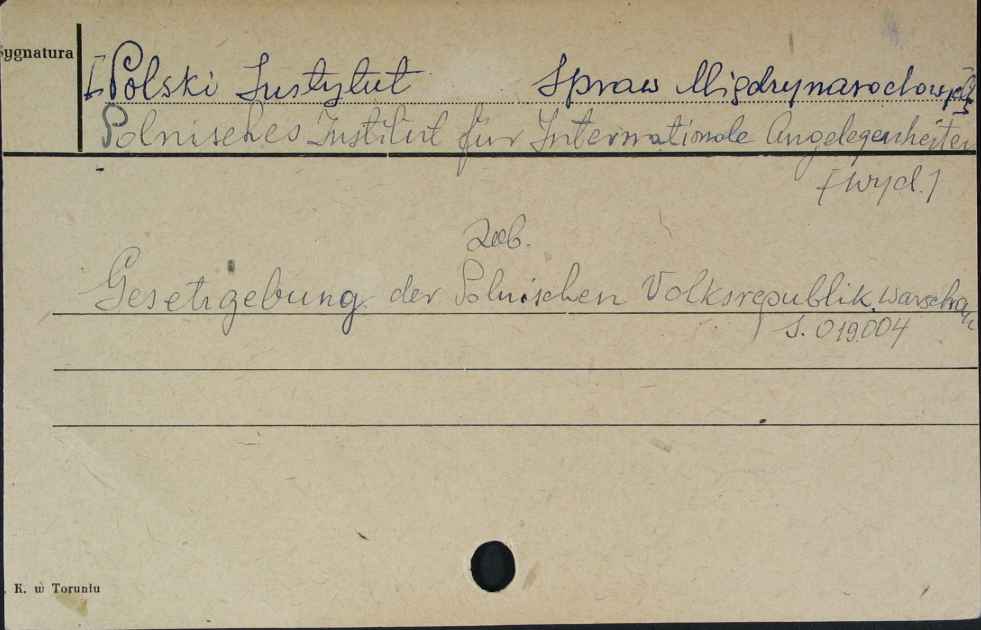 Sygnatura
[Polski Instytut Spraw Międzynarodowych]
Polnisches Institut für Internationale Angelegenheiten
[wyd.]
zob.
Gesetzgebung der Polnischen Volksrepublik. Warschau
S. 019.004
K. w Toruniu